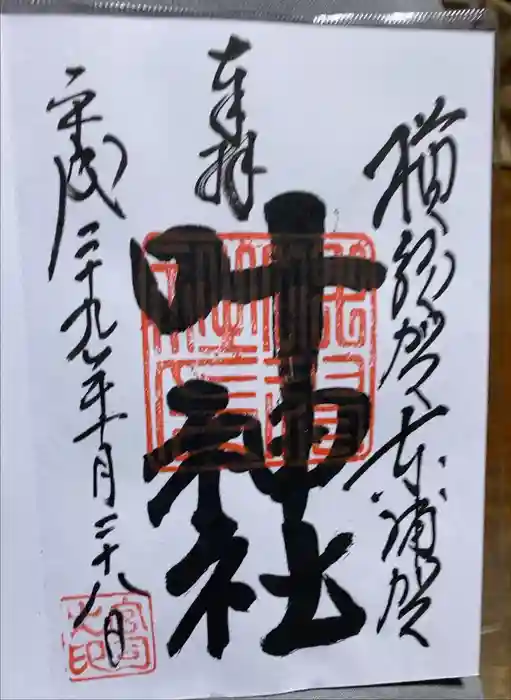 横須賀東浦賀
奉拝
叶神社
平成二十九年十月二十八日
宮司之印